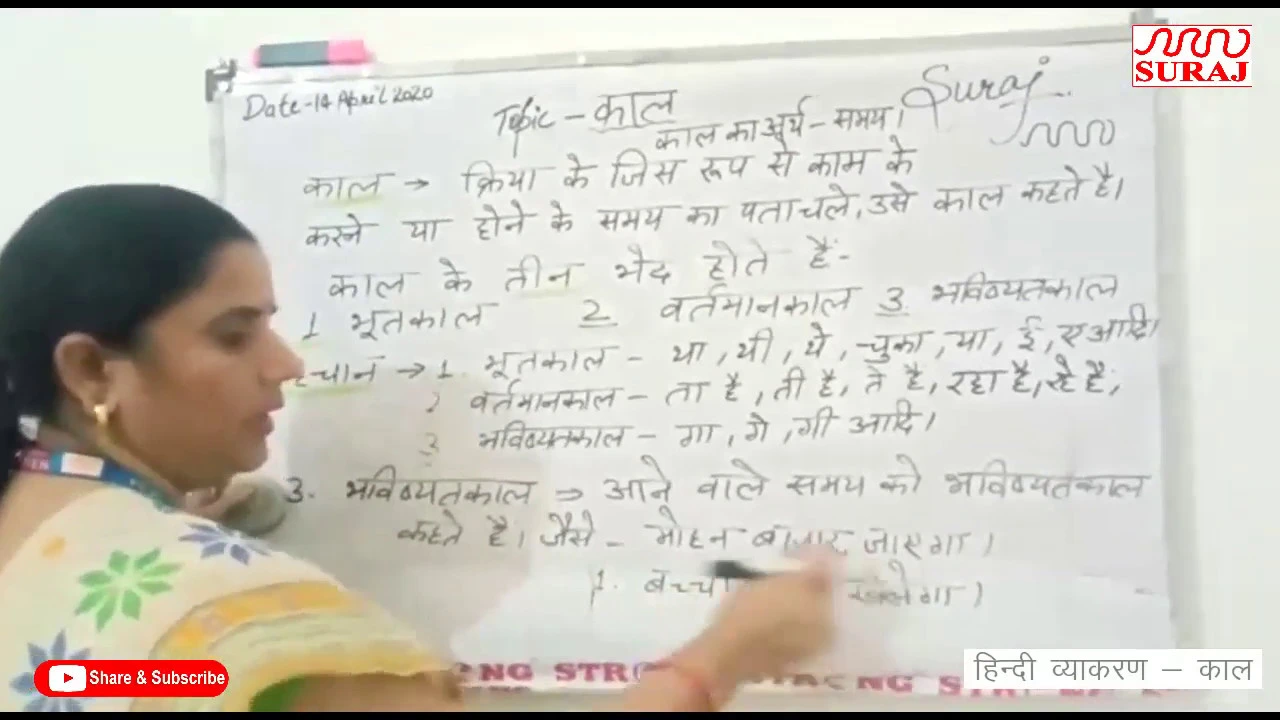 SURAJ
Date-14 April 2020
Topic - काल
Suraj
काल का अर्थ - समय।
काल → क्रिया के जिस रूप से काम के
करने या होने के समय का पता चले, उसे काल कहते है।
काल के तीन भेद होते हैं:-
1 भूतकाल 2 वर्तमानकाल 3. भविष्यतकाल
→ 1. भूतकाल - था, थी, थे, चुका, या, ई, ए आदि।
2 वर्तमानकाल - ता है, ती है, ते है, रहा है, रहे है,
3 भविष्यतकाल - गा, गे, गी आदि।
3. भविष्यतकाल ⇒ आने वाले समय को भविष्यतकाल
कहते है। जैसे - मोहन बाजार जाएगा।
1. बच्चा खेलेगा।
Share & Subscribe
हिन्दी व्याकरण – काल